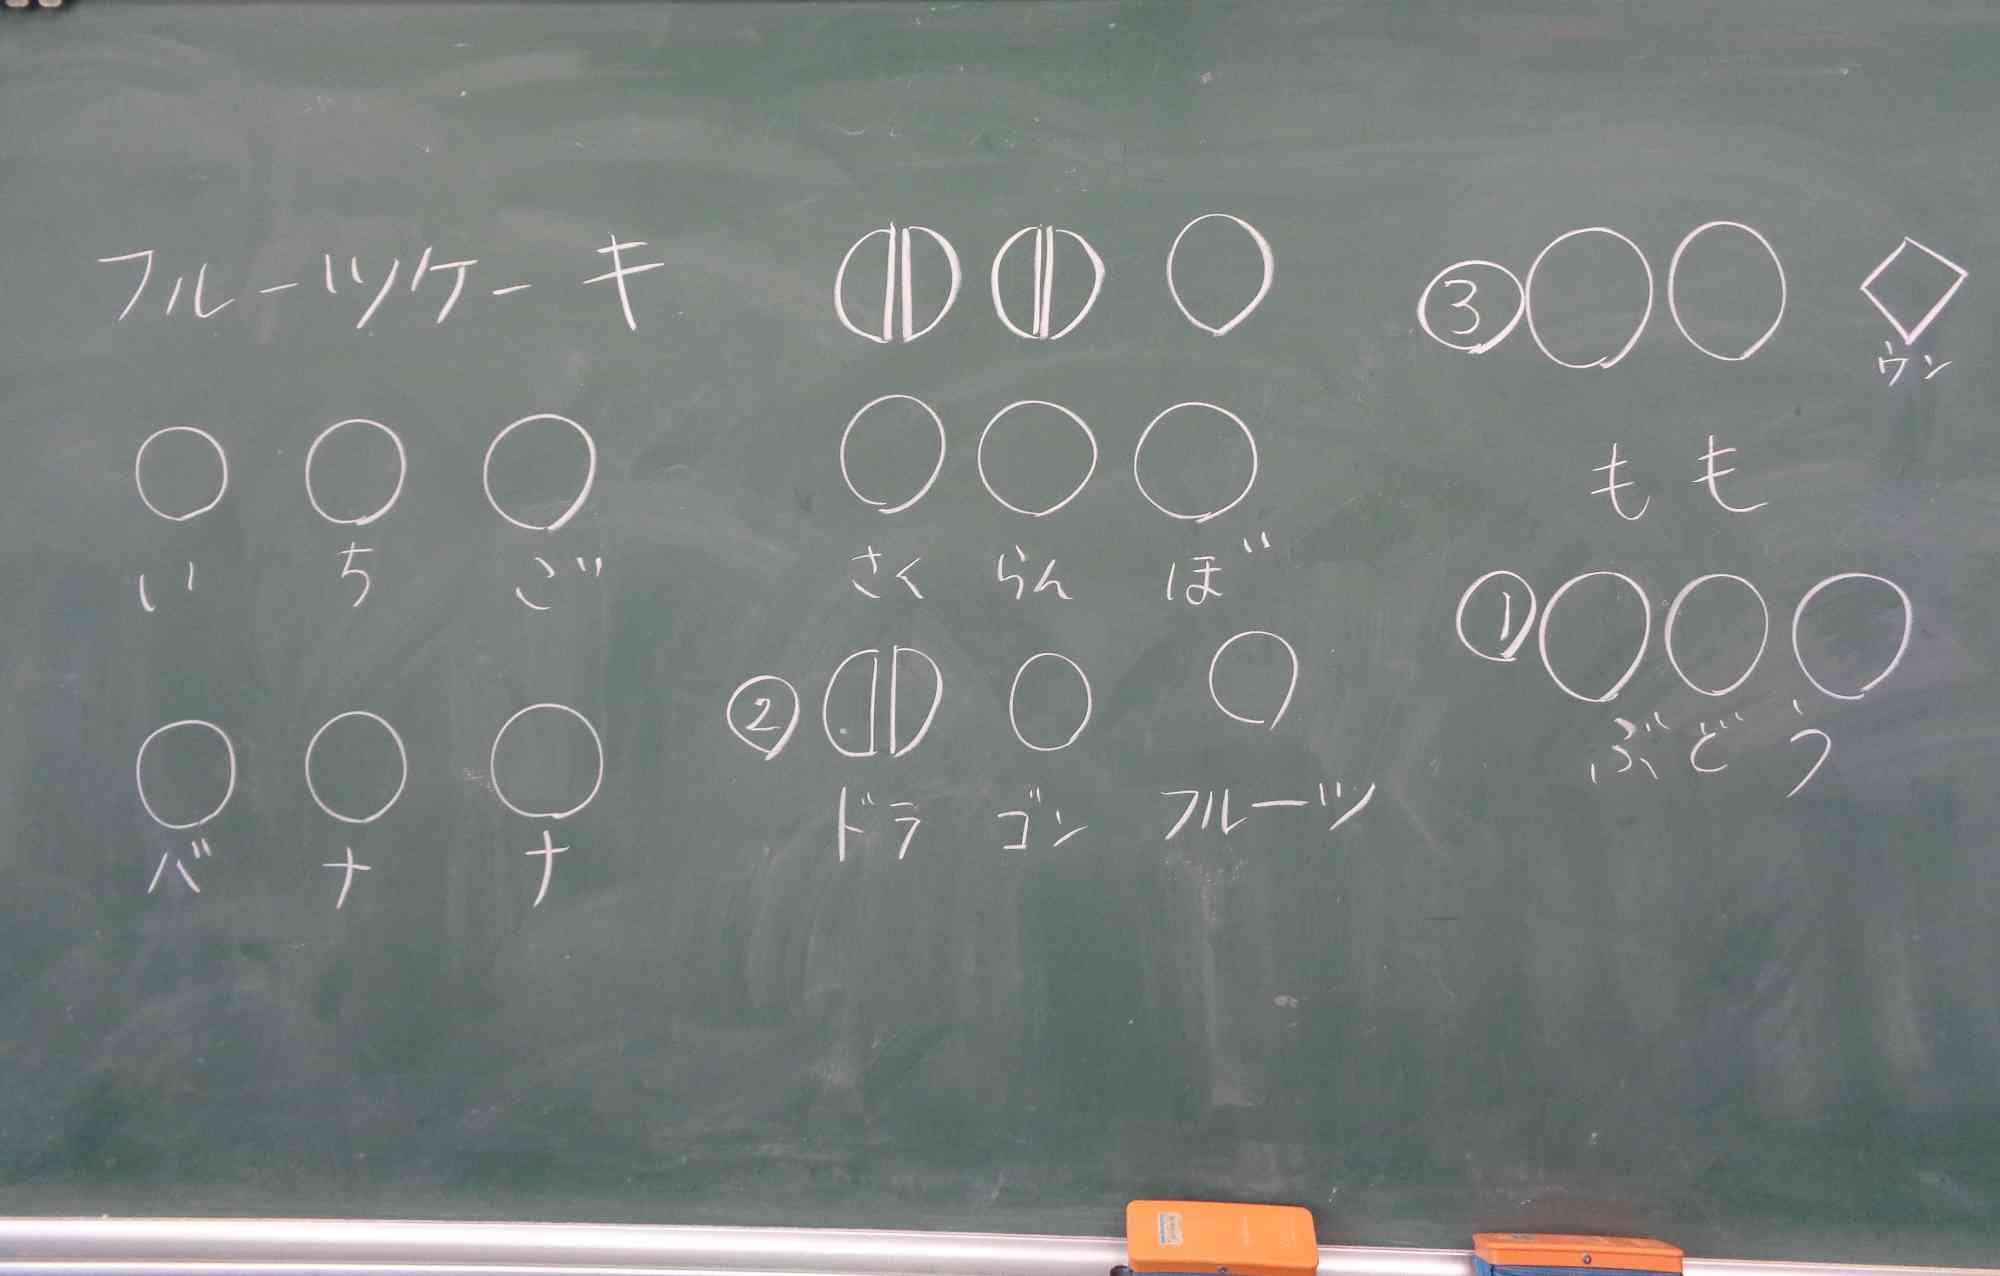 フルーツケーキ
い ち ご
バ ナ ナ
さく らん ぼ
②
ドラ ゴン フルーツ
③
ウン
もも
①
ぶどう